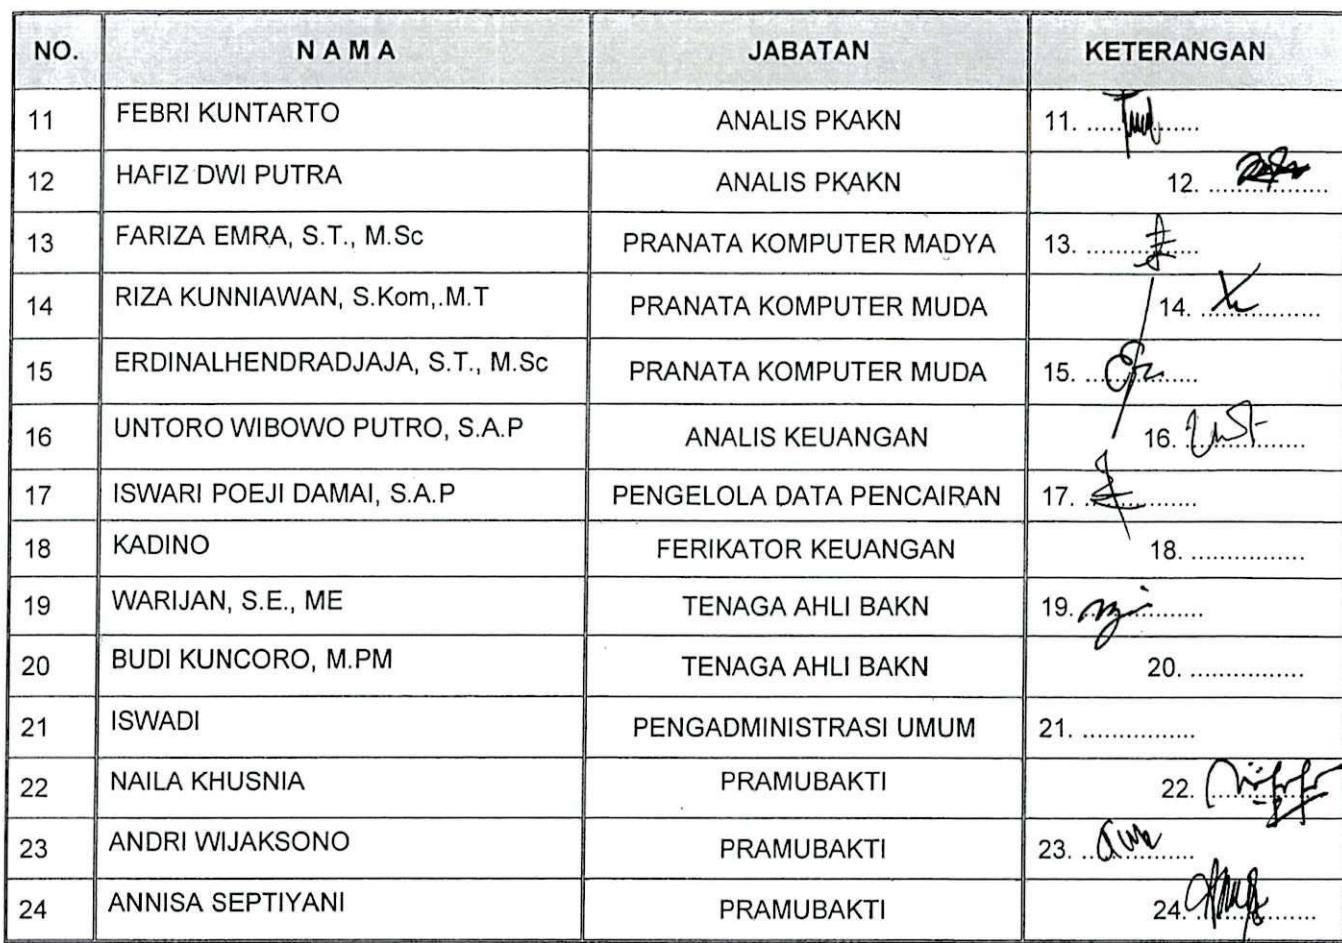 NO. N A M A JABATAN KETERANGAN
11 FEBRI KUNTARTO ANALIS PKAKN 11. ................
12 HAFIZ DWI PUTRA ANALIS PKAKN 12. ................
13 FARIZA EMRA, S.T., M.Sc PRANATA KOMPUTER MADYA 13. ................
14 RIZA KUNNIAWAN, S.Kom,.M.T PRANATA KOMPUTER MUDA 14. ................
15 ERDINALHENDRADJAJA, S.T., M.Sc PRANATA KOMPUTER MUDA 15. ................
16 UNTORO WIBOWO PUTRO, S.A.P ANALIS KEUANGAN 16. ................
17 ISWARI POEJI DAMAI, S.A.P PENGELOLA DATA PENCAIRAN 17. ................
18 KADINO FERIKATOR KEUANGAN 18. ................
19 WARIJAN, S.E., ME TENAGA AHLI BAKN 19. ................
20 BUDI KUNCORO, M.PM TENAGA AHLI BAKN 20. ................
21 ISWADI PENGADMINISTRASI UMUM 21. ................
22 NAILA KHUSNIA PRAMUBAKTI 22. ................
23 ANDRI WIJAKSONO PRAMUBAKTI 23. ................
24 ANNISA SEPTIYANI PRAMUBAKTI 24. ................